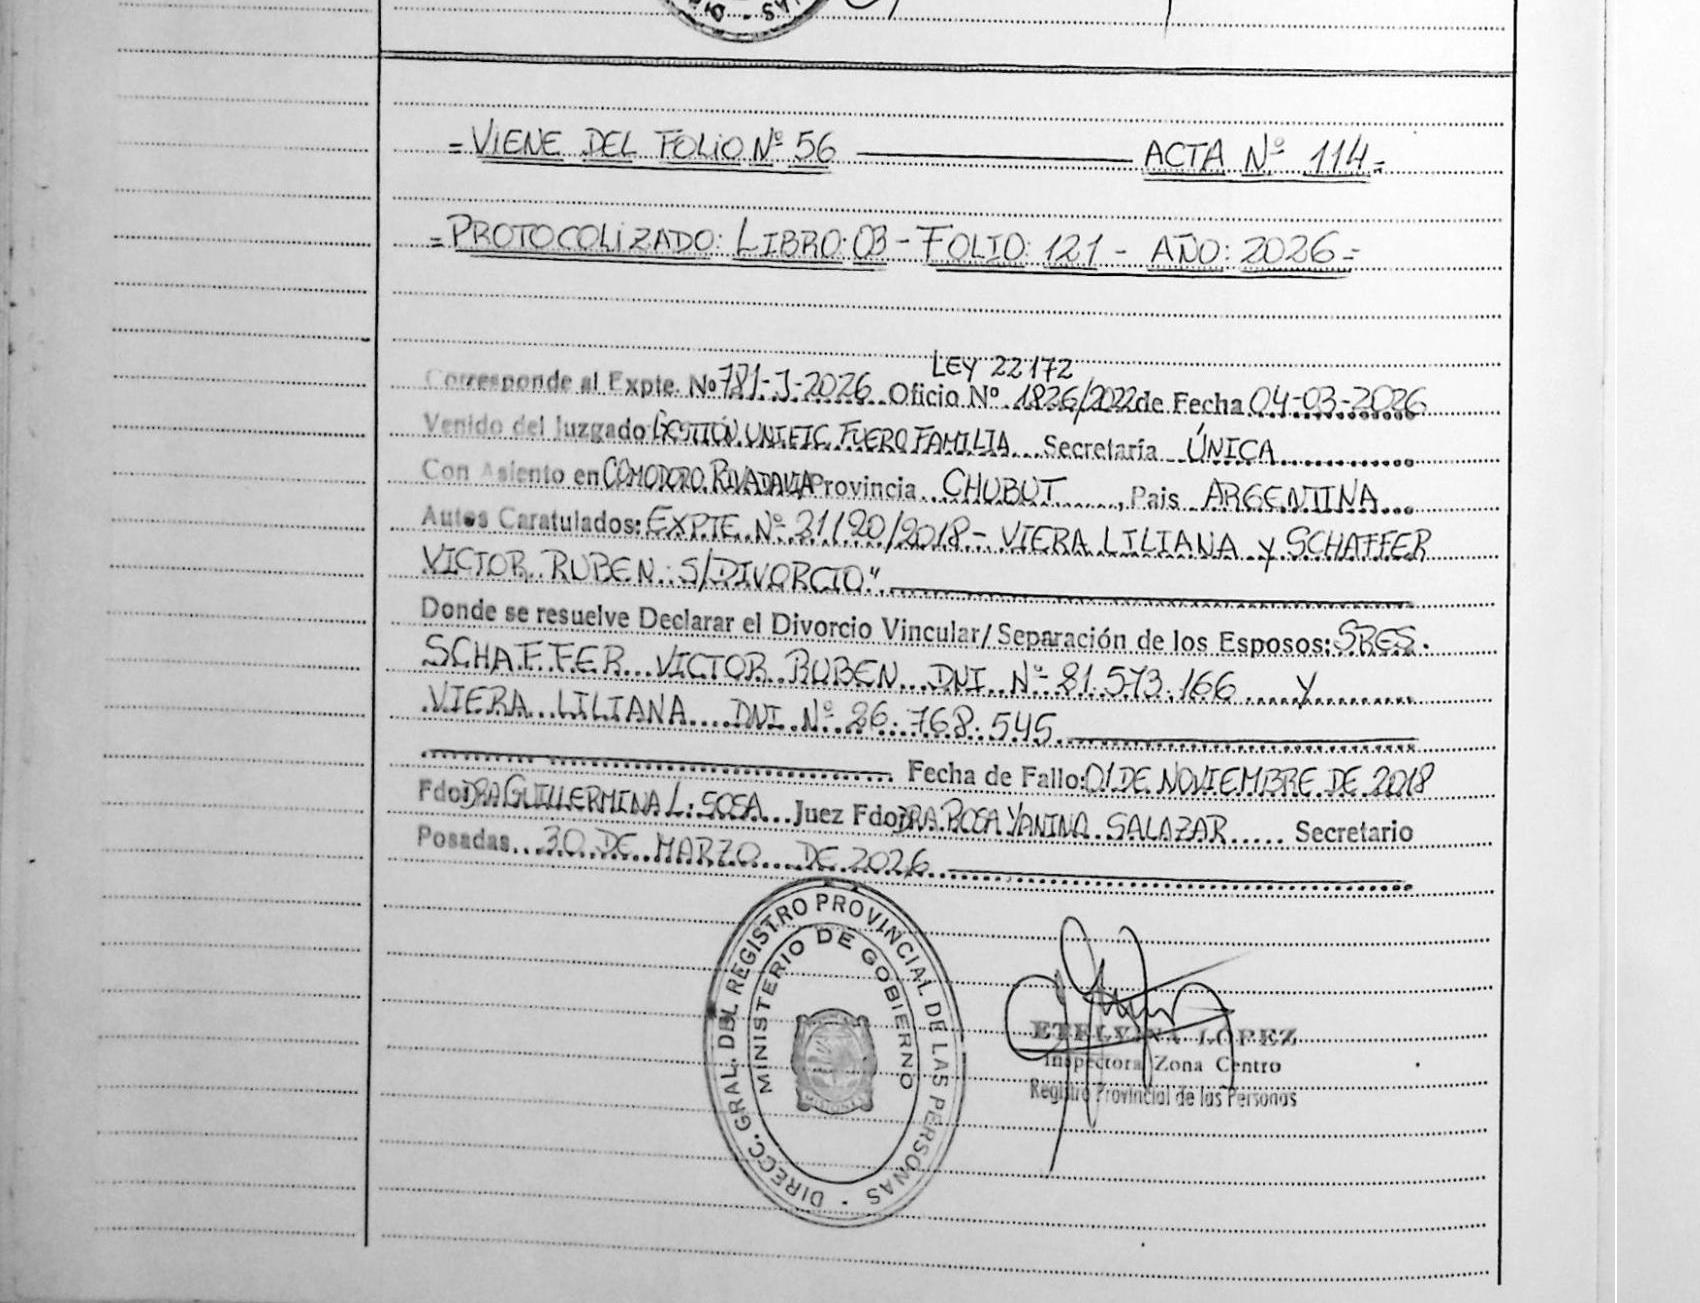 = VIENE DEL FOLIO Nº 56 ——— ACTA Nº 114=
= PROTOCOLIZADO: LIBRO: 03 - FOLIO: 121 - AÑO: 2026=
LEY 22172
Corresponde al Expte. Nº 781-J-2026 Oficio Nº 1826/2022 de Fecha 04-03-2026
Venido del Juzgado GESTIÓN UNIFIC. FUERO FAMILIA Secretaría ÚNICA
Con Asiento en COMODORO RIVADAVIA Provincia CHUBUT, Pais ARGENTINA
Autos Caratulados: EXPTE. Nº 21/20/2018 - VIERA LILIANA y SCHAFFER
VICTOR RUBEN S/DIVORCIO"
Donde se resuelve Declarar el Divorcio Vincular/Separación de los Esposos: SRES.
SCHAFFER VICTOR RUBEN DNI Nº 21.573.166 Y
VIERA LILIANA DNI Nº 26.768.545
Fecha de Fallo: 01 DE NOVIEMBRE DE 2018
Fdo: DRA GUILLERMINA L. SOSA Juez Fdo: DRA. ROSA YANINA SALAZAR Secretario
Posadas 30 DE MARZO DE 2026
DIRECC. GRAL. DEL REGISTRO PROVINCIAL DE LAS PERSONAS
MINISTERIO DE GOBIERNO
MISIONES
ETELVINA LOPEZ
Inspectora Zona Centro
Registro Provincial de las Personas